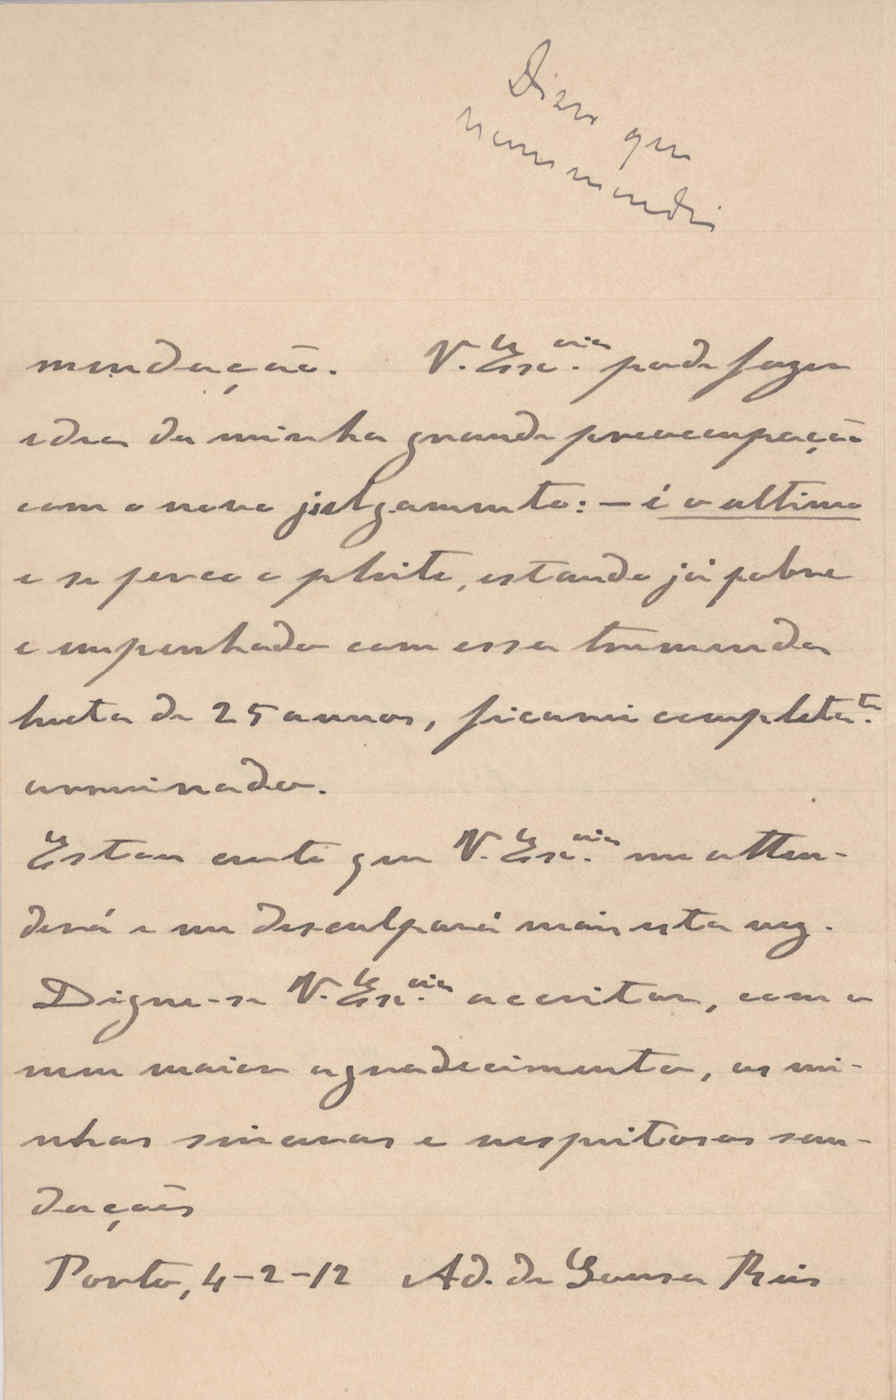 Dizer que
recommendei
mendação. V. Exc.cia pode fazer
idea da minha grande preoccupação
com o novo julgamento: – é o ultimo
e se perco o pleito, estando já pobre
e empenhado com essa tremenda
lucta de 25 annos, ficarei completa.te
arruinado.
Estou certo que V. Exc.cia me atten-
derá e me desculpará mais esta vez.
Digne-se V. Exc.cia acceitar, com o
meu maior agradecimento, as mi-
nhas sinceras e respeitosas sau-
dações
Porto, 4-2-12 Ad. de Sousa Reis